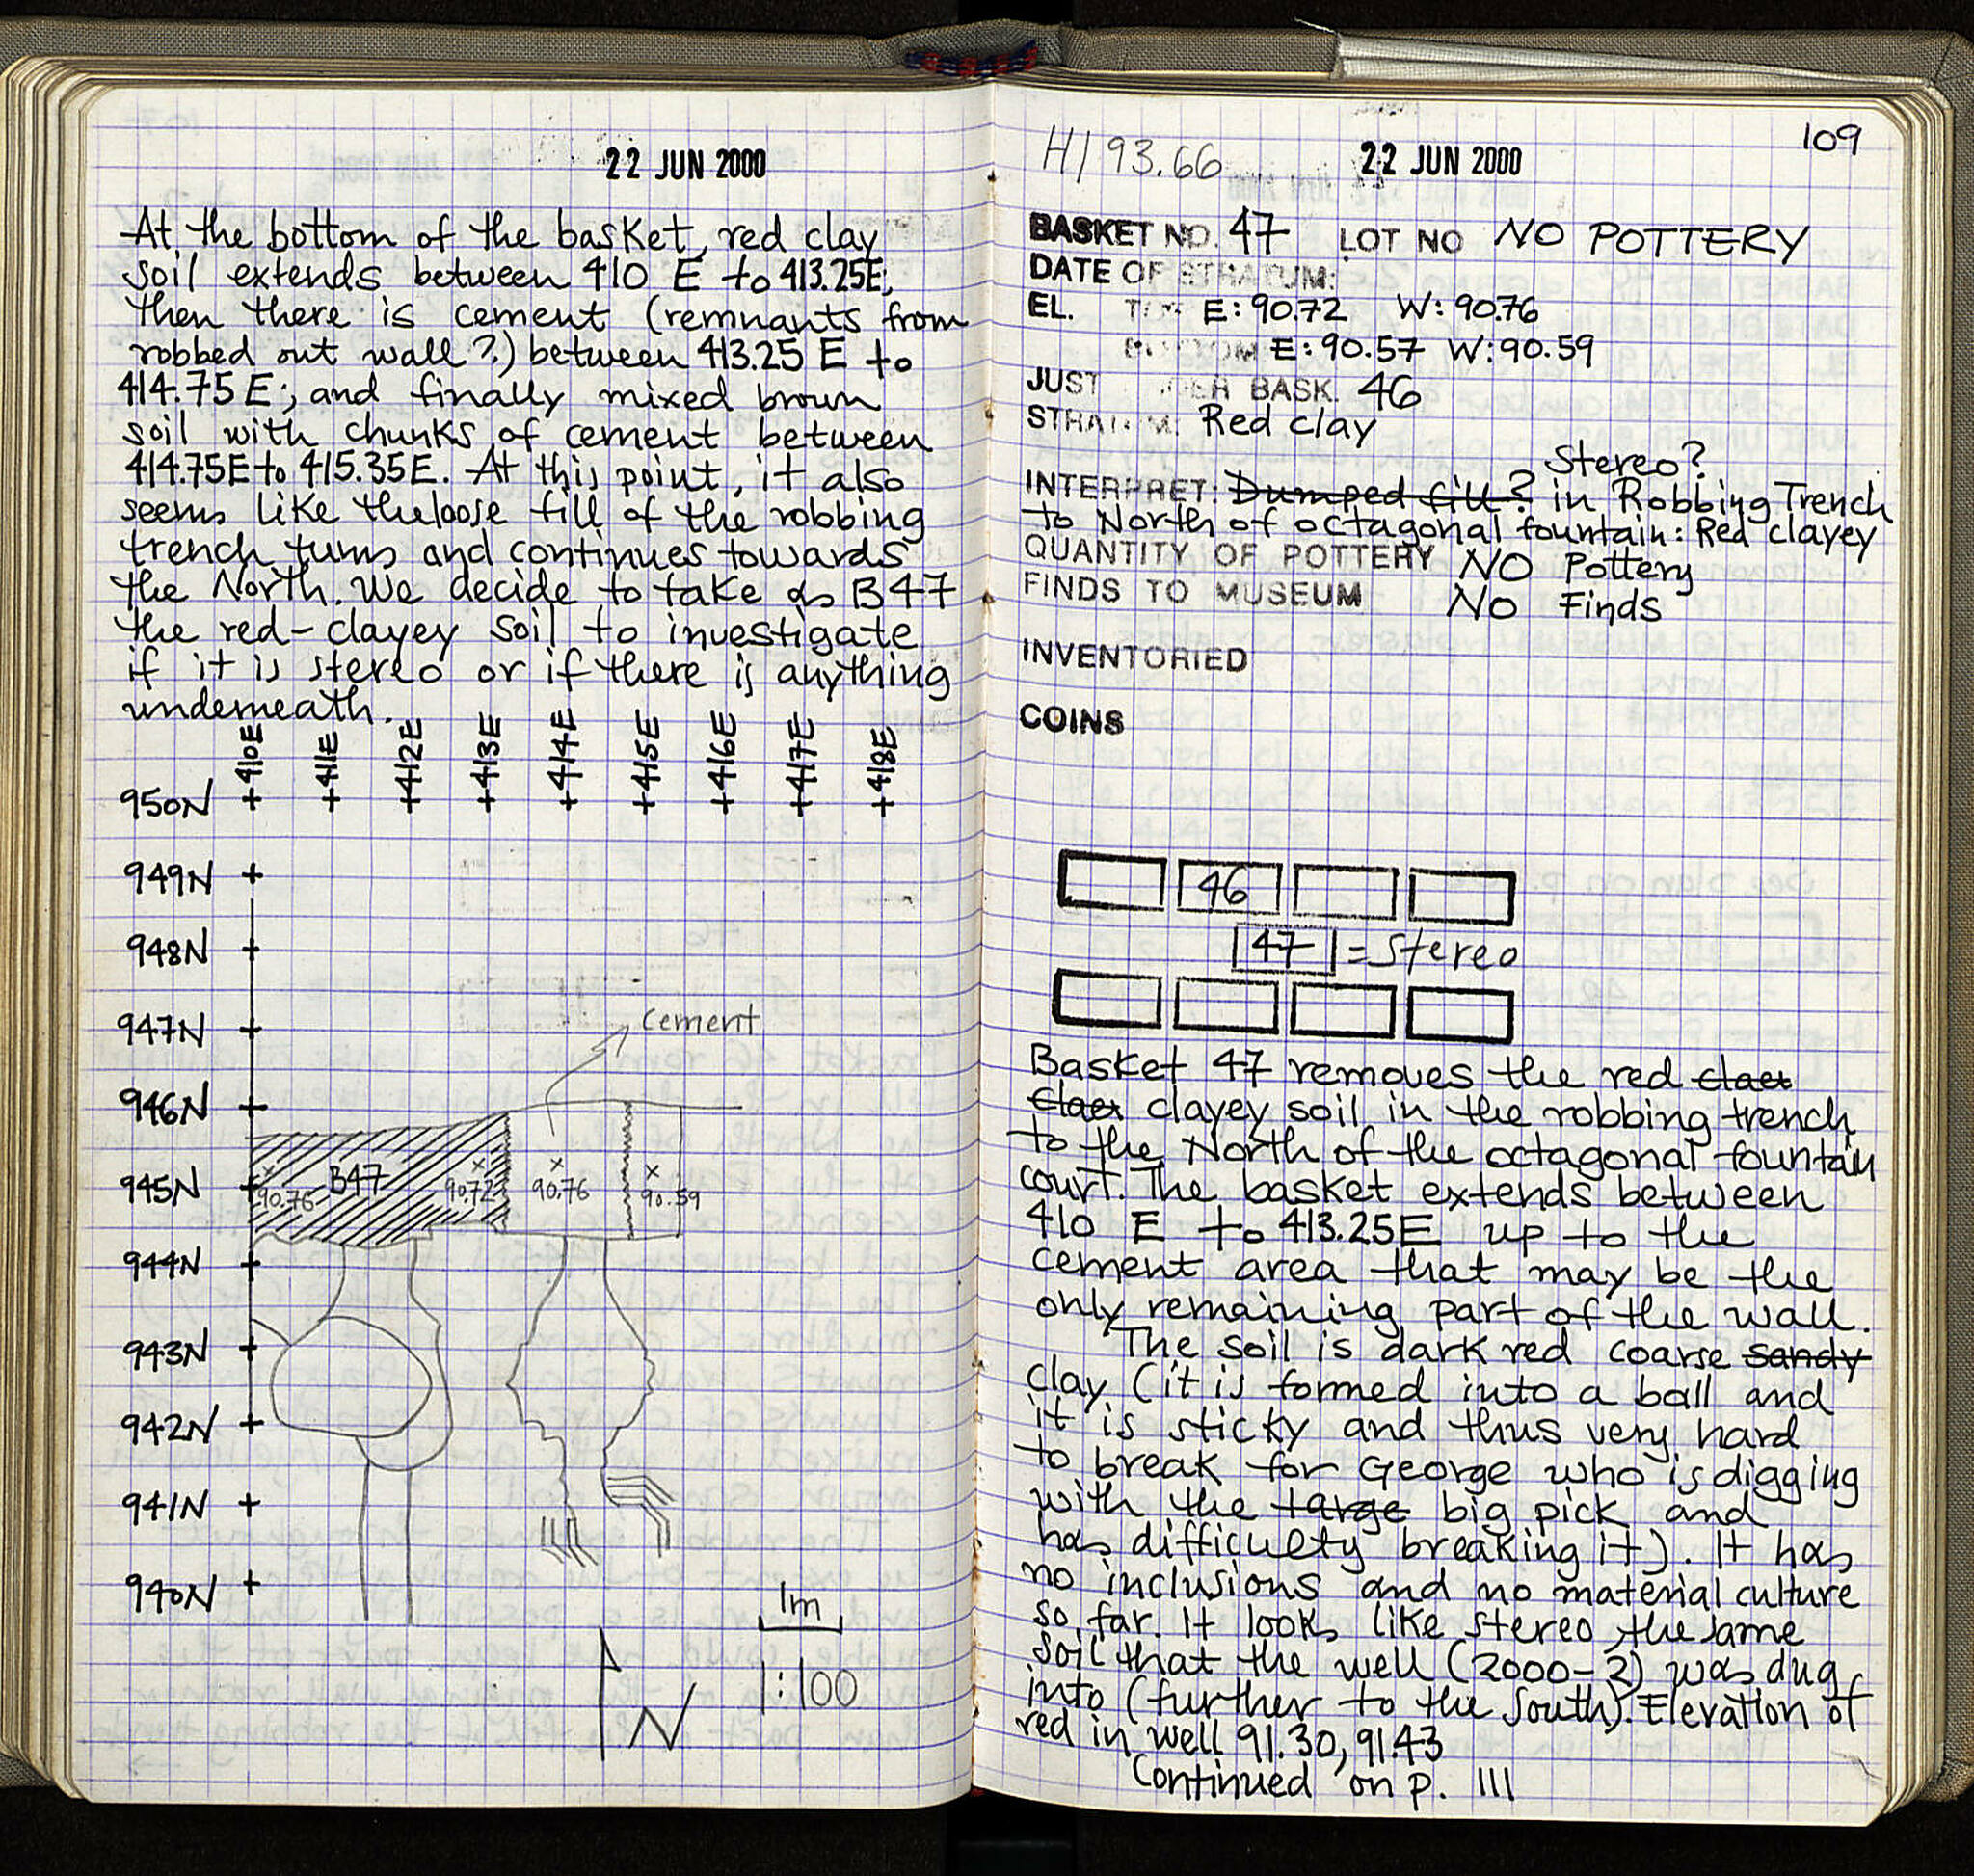 22 JUN 2000
At the bottom of the basket, red clay
soil extends between 410 E to 413.25E;
then there is cement (remnants from
robbed out wall?) between 413.25 E to
414.75 E; and finally mixed brown
soil with chunks of cement between
414.75E to 415.35E. At this point, it also
seems like the loose fill of the robbing
trench turns and continues towards
the North. We decide to take as B47
the red-clayey soil to investigate
if it is stereo or if there is anything
underneath.
410E 411E 412E 413E 414E 415E 416E 417E 418E
950N
949N
948N
947N
cement
946N
945N
90.76 B47 90.72 90.76 90.59
944N
943N
942N
941N
940N
1m
N 1:100
109
HI 93.66 22 JUN 2000
BASKET NO. 47 LOT NO NO POTTERY
DATE OF STRATUM:
EL. TOP E: 90.72 W: 90.76
BOTTOM E: 90.57 W: 90.59
JUST UNDER BASK. 46
STRATUM: Red clay
Stereo?
INTERPRET: Dumped fill? in Robbing Trench
to North of octagonal fountain: Red clayey
QUANTITY OF POTTERY NO Pottery
FINDS TO MUSEUM NO Finds
INVENTORIED
COINS
46
47 = Stereo
Basket 47 removes the red claet
claet clayey soil in the robbing trench
to the North of the octagonal fountain
court. The basket extends between
410 E to 413.25E up to the
cement area that may be the
only remaining part of the wall.
The soil is dark red coarse sandy
clay (it is formed into a ball and
it is sticky and thus very hard
to break for George who is digging
with the large big pick and
has difficulty breaking it). It has
no inclusions and no material culture
so far. It looks like stereo, the same
soil that the well (2000-2) was dug
into (further to the South). Elevation of
red in well 91.30, 91.43
Continued on p. 111